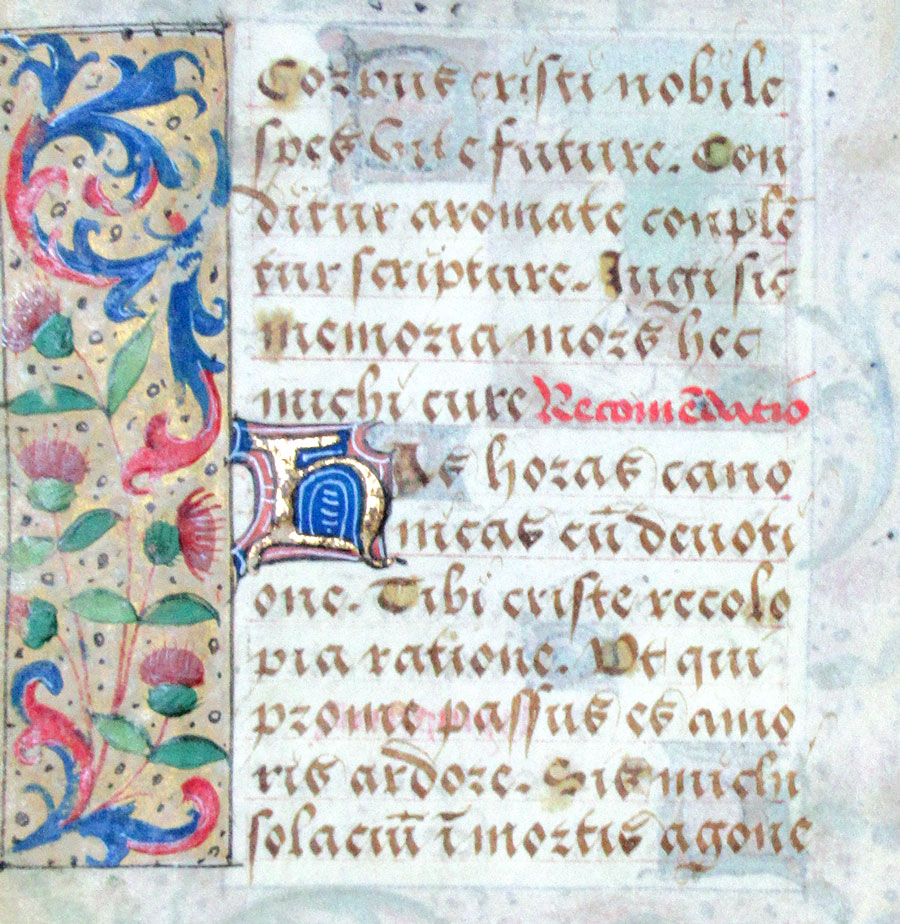 Corpus cristi nobile
spes vite future. Con
ditur aromate conplē
tur scripture. Iugi sic
memoria mors̄ hec
michi cure Recomēdatio
Has horas cano
nicas cū deuoti
one. Tibi criste recolo
pia ratione. Ut qui
prome passus es amo
ris ardore. Sis michi
solaciū ī mortis agone